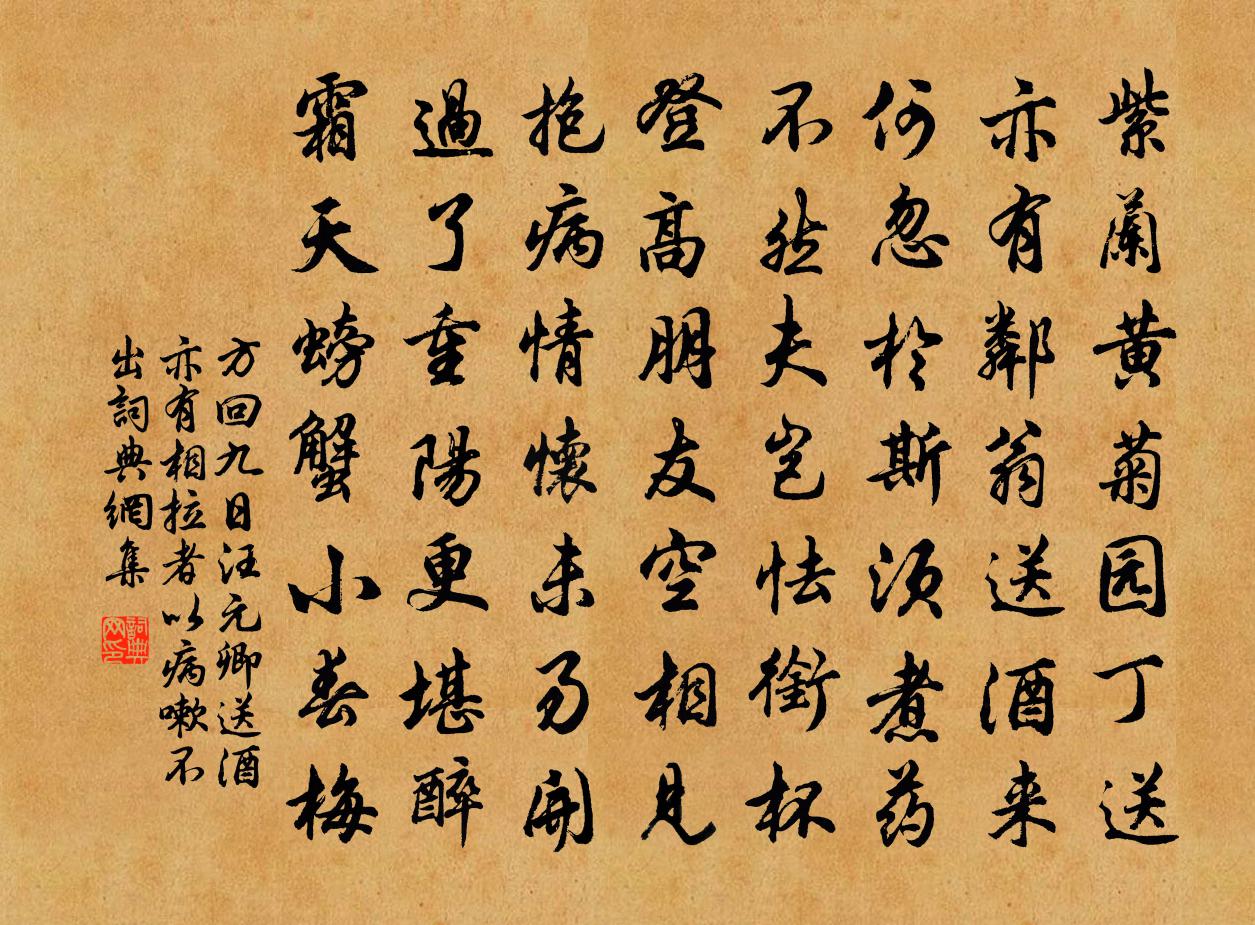 紫蘭黄菊园丁送
亦有鄰翁送酒来
何忽於斯須煮药
不然夫岂怯銜杯
登高朋友空相見
抱病情懷未易開
過了重陽更堪醉
霜天螃蟹小春梅
方回九日汪元卿送酒
亦有相拉者以病嗽不
出詞典網集
詞典网印